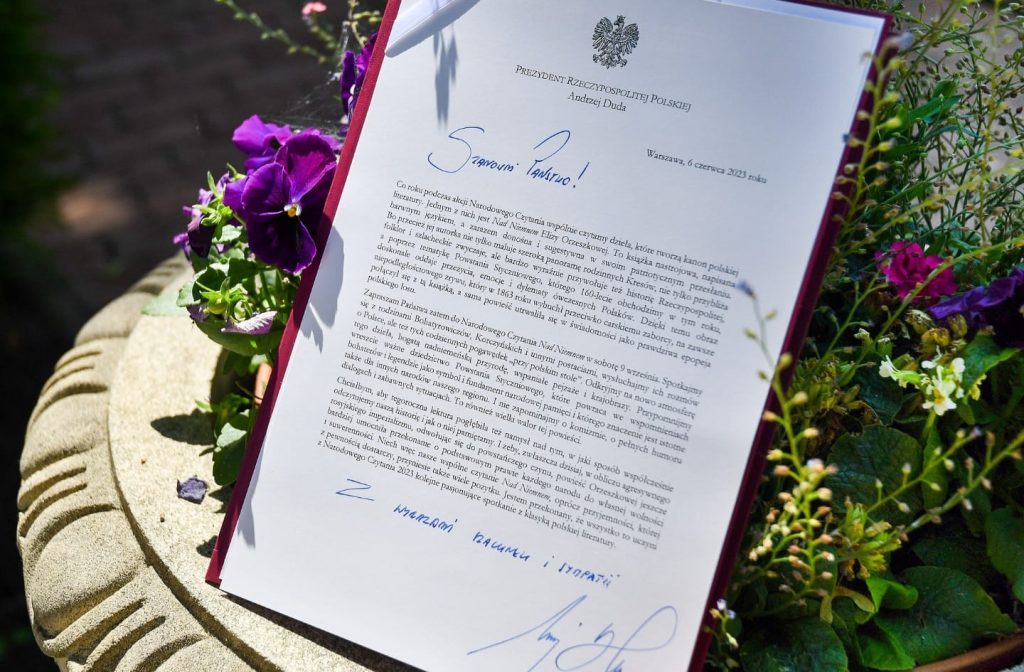 PREZYDENT RZECZYPOSPOLITEJ POLSKIEJ
Andrzej Duda
Warszawa, 6 czerwca 2023 roku
Szanowni Państwo!
Co roku podczas akcji Narodowego Czytania wspólnie czytamy dzieła, które tworzą kanon polskiej
literatury. Jednym z nich jest Nad Niemnem Elizy Orzeszkowej. To książka nastrojowa, napisana
barwnym językiem, a zarazem donośna i sugestywna w swoim patriotycznym przesłaniu.
Bo przecież jej autorka nie tylko maluje szeroką panoramę rodzinnych Kresów, nie tylko przybliża
folklor i szlacheckie zwyczaje, ale bardzo wyraźnie przywołuje też historię Rzeczypospolitej,
a poprzez tematykę Powstania Styczniowego, którego 160-lecie obchodzimy w tym roku,
doskonale oddaje przeżycia, emocje i dylematy ówczesnych Polaków. Dzięki temu obraz
niepodległościowego zrywu, który w 1863 roku wybuchł przeciwko carskiemu zaborcy, na zawsze
połączył się z tą książką, a sama powieść utrwaliła się w świadomości jako prawdziwa epopeja
polskiego losu.
Zapraszam Państwa zatem do Narodowego Czytania Nad Niemnem w sobotę 9 września. Spotkajmy
się z rodzinami Bohatyrowiczów, Korczyńskich i innymi postaciami, wysłuchajmy ich rozmów
o Polsce, ale też tych codziennych pogawędek „przy polskim stole”. Odkryjmy na nowo atmosferę
tego dzieła, bogatą nadniemeńską przyrodę, wspaniałe pejzaże i krajobrazy. Przypomnijmy
wreszcie ważne dziedzictwo Powstania Styczniowego, które powraca we wspomnieniach
bohaterów i legendzie jako symbol i fundament narodowej pamięci i którego znaczenie jest istotne
także dla innych narodów naszego regionu. I nie zapominajmy o komizmie, o pełnych humoru
dialogach i zabawnych sytuacjach. To również wielki walor tej powieści.
Chciałbym, aby tegoroczna lektura pogłębiła też namysł nad tym, w jaki sposób współcześnie
odczytujemy naszą historię i jak o niej pamiętamy. I żeby, zwłaszcza dzisiaj, w obliczu agresywnego
rosyjskiego imperializmu, odwołując się do powstańczego czynu, powieść Orzeszkowej jeszcze
bardziej umocniła przekonanie o podstawowym prawie każdego narodu do własnej wolności
i suwerenności. Niech więc nasze wspólne czytanie Nad Niemnem, oprócz przyjemności, której
z pewnością dostarczy, przyniesie także wiele pożytku. Jestem przekonany, że wszystko to uczyni
z Narodowego Czytania 2023 kolejne pasjonujące spotkanie z klasyką polskiej literatury.
Z
wyrazami szacunku i sympatii